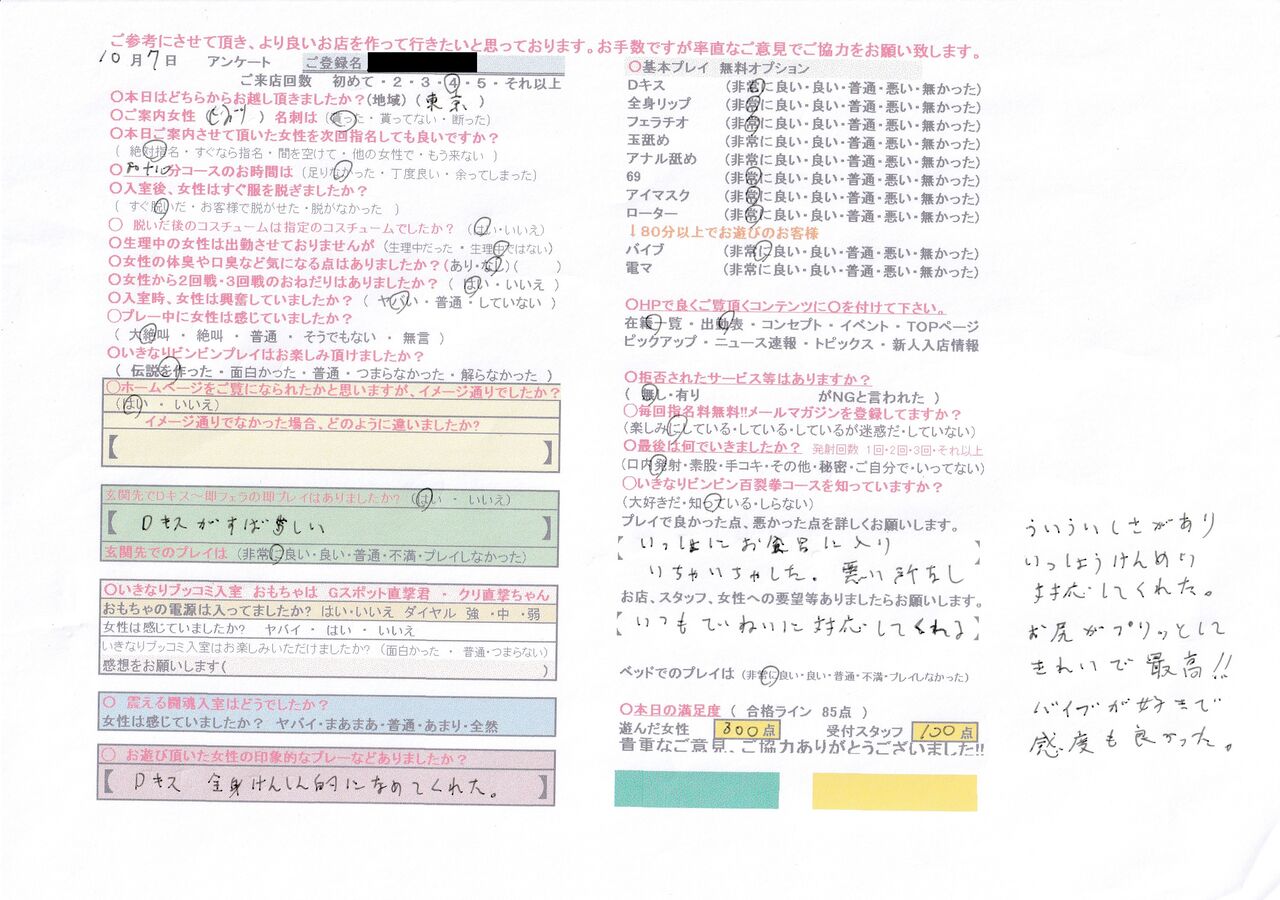 ご参考にさせて頂き、より良いお店を作って行きたいと思っております。お手数ですが率直なご意見でご協力をお願い致します。
10月7日 アンケート ご登録名
ご来店回数 初めて・2・3・4・5・それ以上
〇本日はどちらからお越し頂きましたか?(地域) ( 東京 )
〇ご案内女性 ( ) 名刺は (貰った・貰ってない・断った)
〇本日ご案内させて頂いた女性を次回指名しても良いですか?
( 絶対指名・すぐなら指名・間を空けて・他の女性で・もう来ない )
〇 分コースのお時間は (足りなかった・丁度良い・余ってしまった)
〇入室後、女性はすぐ服を脱ぎましたか?
( すぐ脱いだ・お客様で脱がせた・脱がなかった )
〇 脱いだ後のコスチュームは指定のコスチュームでしたか? (はい・いいえ)
〇生理中の女性は出勤させておりませんが (生理中だった・生理中ではない)
〇女性の体臭や口臭など気になる点はありましたか?(あり・なし)( )
〇女性から2回戦・3回戦のおねだりはありましたか? ( はい・いいえ )
〇入室時、女性は興奮していましたか? ( ヤバい・普通・していない )
〇プレー中に女性は感じていましたか?
( 大絶叫 ・ 絶叫 ・ 普通 ・ そうでもない ・ 無言 )
〇いきなりビンビンプレイはお楽しみ頂けましたか?
( 伝説を作った・面白かった・普通・つまらなかった・解らなかった )
〇ホームページをご覧になられたかと思いますが、イメージ通りでしたか?
(はい ・ いいえ)
イメージ通りでなかった場合、どのように違いましたか?
【 】
玄関先でDキス〜即フェラの即プレイはありましたか? (はい ・ いいえ)
【 Dキスがすばらしい 】
玄関先でのプレイは (非常に良い・良い・普通・不満・プレイしなかった)
〇いきなりブッコミ入室 おもちゃは Gスポット直撃君 ・ クリ直撃ちゃん
おもちゃの電源は入ってましたか? はい・いいえ ダイヤル 強 ・中 ・弱
女性は感じていましたか? ヤバイ ・ はい ・ いいえ
いきなりブッコミ入室はお楽しみいただけましたか? (面白かった ・ 普通・つまらない)
感想をお願いします( )
〇 震える闘魂入室はどうでしたか?
女性は感じていましたか? ヤバイ・まあまあ・普通・あまり・全然
〇 お遊び頂いた女性の印象的なプレーなどありましたか?
【 Dキス 全身けんしん的になめてくれた。 】
〇基本プレイ 無料オプション
Dキス (非常に良い・良い・普通・悪い・無かった)
全身リップ (非常に良い・良い・普通・悪い・無かった)
フェラチオ (非常に良い・良い・普通・悪い・無かった)
玉舐め (非常に良い・良い・普通・悪い・無かった)
アナル舐め (非常に良い・良い・普通・悪い・無かった)
69 (非常に良い・良い・普通・悪い・無かった)
アイマスク (非常に良い・良い・普通・悪い・無かった)
ローター (非常に良い・良い・普通・悪い・無かった)
↓80分以上でお遊びのお客様
バイブ (非常に良い・良い・普通・悪い・無かった)
電マ (非常に良い・良い・普通・悪い・無かった)
〇HPで良くご覧頂くコンテンツに〇を付けて下さい。
在籍一覧 ・ 出勤表 ・ コンセプト ・ イベント ・ TOPページ
ピックアップ ・ ニュース速報 ・ トピックス ・ 新人入店情報
〇拒否されたサービス等はありますか?
( 無し・有り がNGと言われた )
〇毎回指名料無料!!メールマガジンを登録してますか?
(楽しみにしている・している・しているが迷惑だ・していない)
〇最後は何でいきましたか? 発射回数 1回・2回・3回・それ以上
(口内発射・素股・手コキ・その他・秘密・ご自分で・いってない)
〇いきなりビンビン百裂拳コースを知っていますか?
(大好きだ・知っている・しらない)
プレイで良かった点、悪かった点を詳しくお願いします。
いっしょにお風呂に入り
いちゃいちゃした。悪い所なし
お店、スタッフ、女性への要望等ありましたらお願いします。
いつもていねいに対応してくれる
ベッドでのプレイは (非常に良い・良い・普通・不満・プレイしなかった)
〇本日の満足度 ( 合格ライン 85点 )
遊んだ女性 300点 受付スタッフ 100点
貴重なご意見、ご協力ありがとうございました!!
ういういしさがあり
いっしょうけんめい
対応してくれた。
お尻がプリッとして
きれいで最高!!
バイブが好きで
感度も良かった。